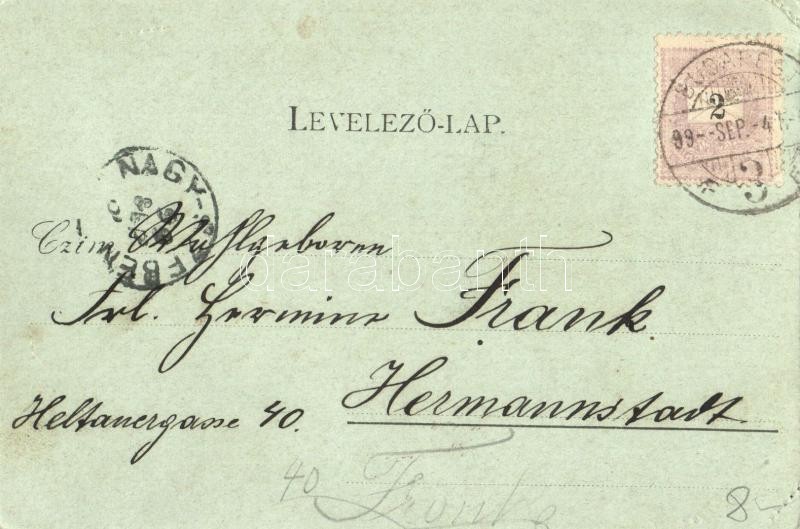 LEVELEZŐ-LAP.
BUDAPEST
2
99--SEP.-4
3
NAGY-SZEBEN
Czim Wohlgeboren
Frl. Hermine Frank
Heltauergasse 40. Hermannstadt
40 Frank
8-
darabanth